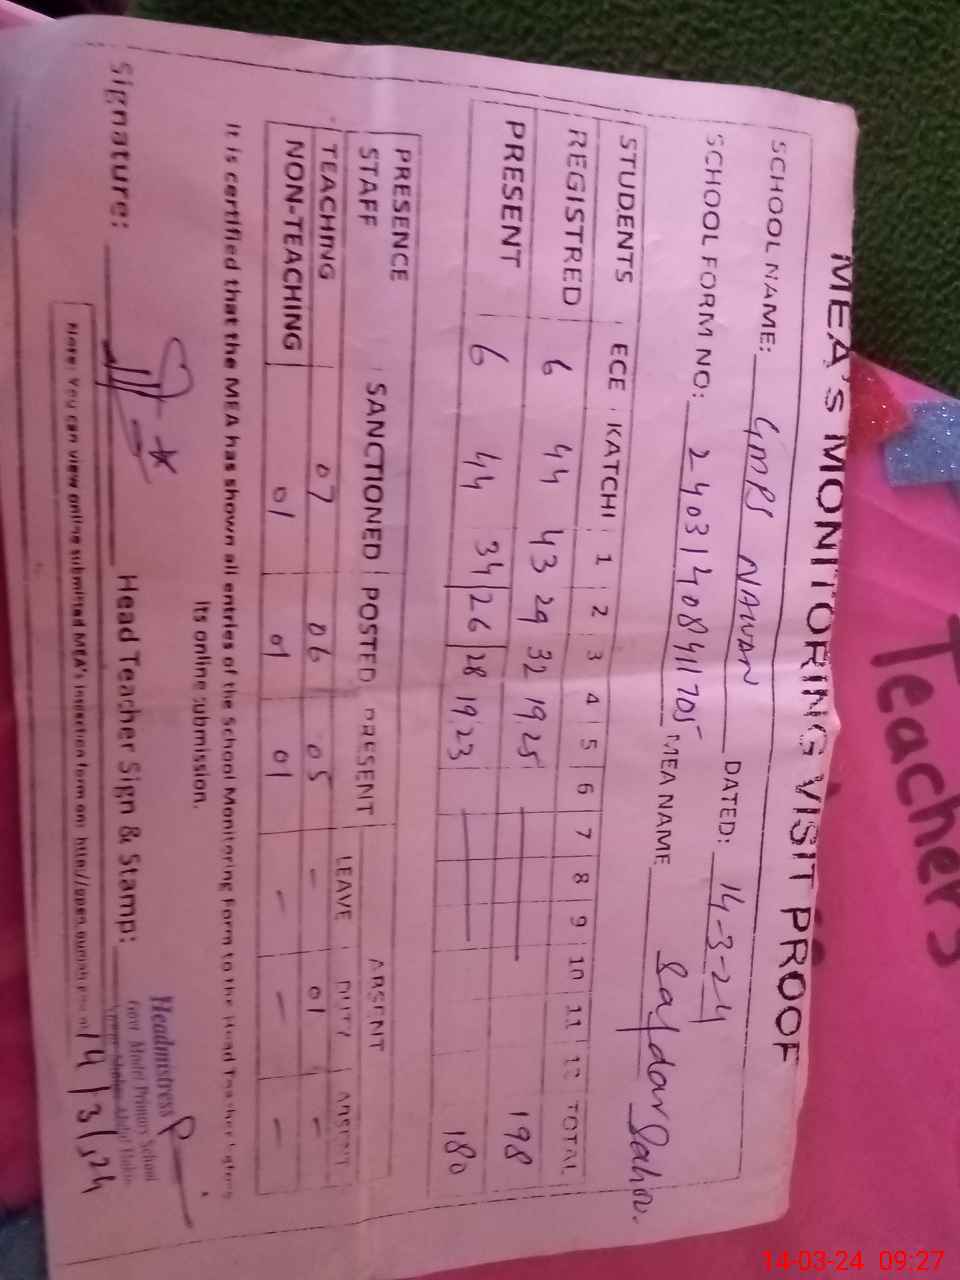 MEA'S MONITORING VISIT PROOF
SCHOOL NAME: GMPS NAWAN DATED: 14-3-24
SCHOOL FORM NO: 24031408411705 MEA NAME Safdar
STUDENTS ECE KATCHI 1 2 3 4 5 6 7 8 9 10 11 12 TOTAL
REGISTRED 6 44 43 29 32 19 25 198
PRESENT 6 44 34 26 28 19 23 180
PRESENCE ABSENT
STAFF SANCTIONED POSTED PRESENT LEAVE DUTY ABSENT
TEACHING 07 06 05 - 01 -
NON-TEACHING 01 01 01 - - -
It is certified that the MEA has shown all entries of the School Monitoring Form to the Head Teacher before
its online submission.
Signature: Head Teacher Sign & Stamp:
Headmistress
Govt Model Primary School
14/3/24
Note: You can view online submitted MEA's insertion form on:
Teachers
14-03-24 09:27